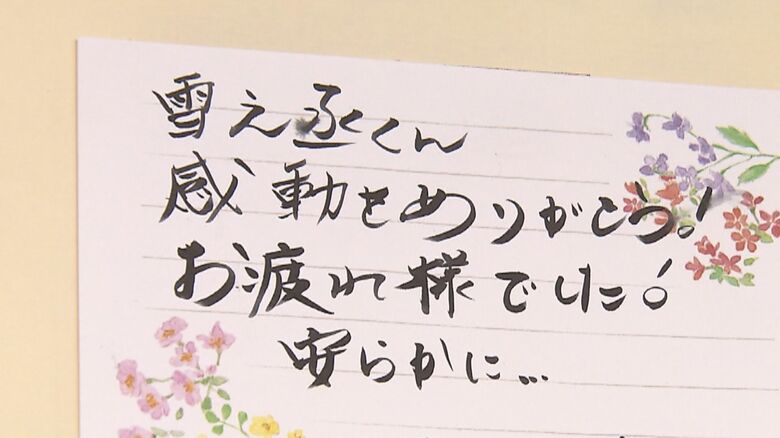 雪之丞くん
感動をありがとう!
お疲れ様でした!
安らかに…